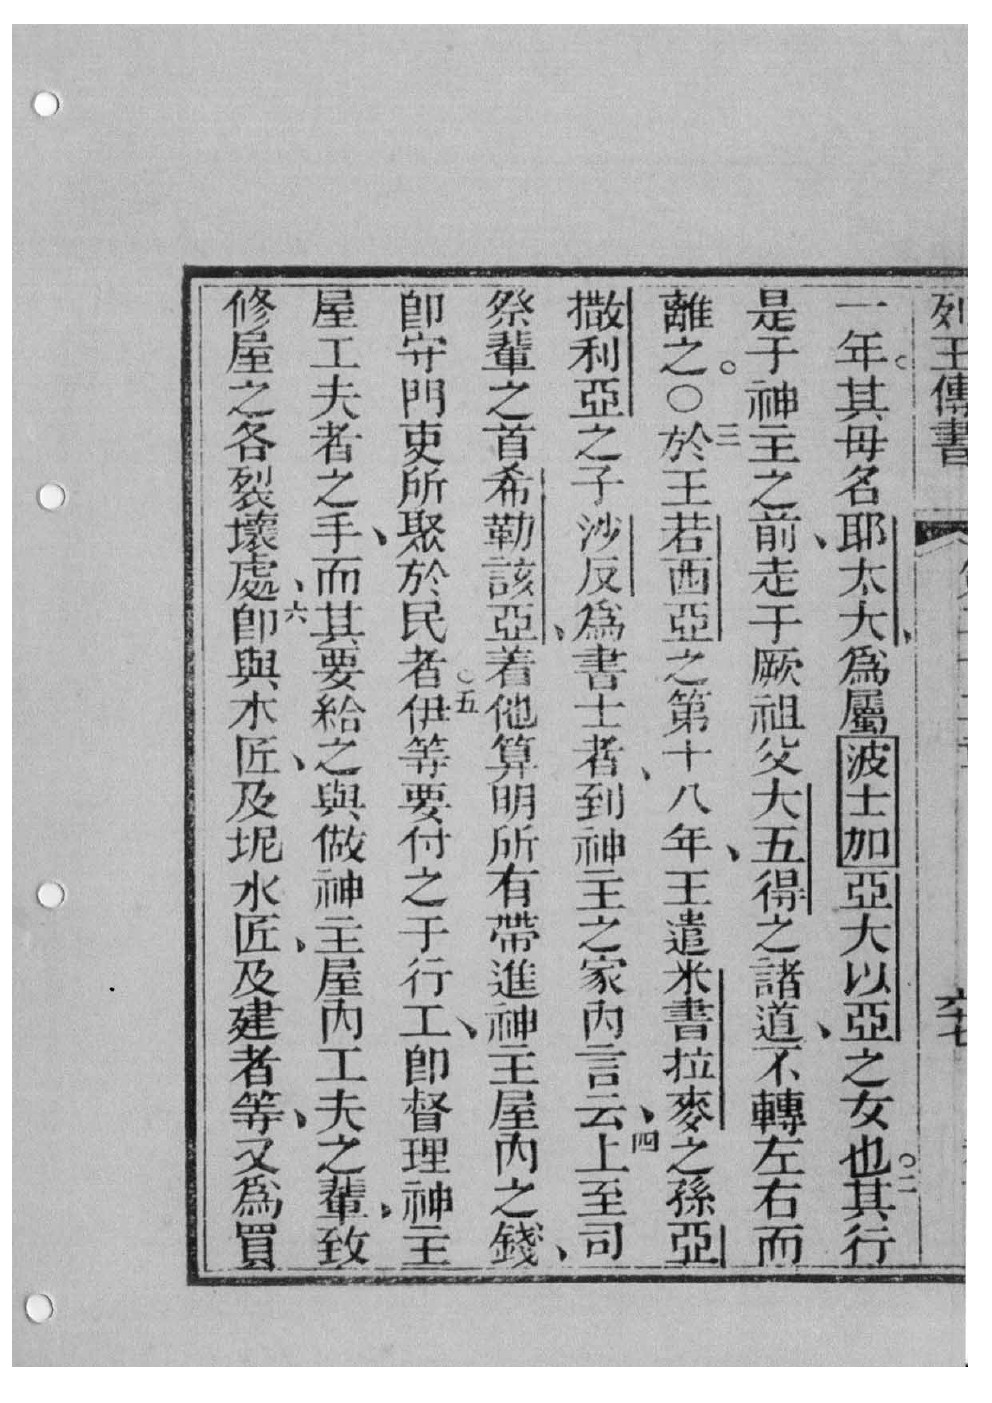 列王傳書
一年。其母名耶太大、為屬波士加亞大以亞之女也。二其行
是于神主之前、走于厥祖父大五得之諸道、不轉左右而
離之。○三於王若西亞之第十八年、王遣米書拉麥之孫亞
撒利亞之子沙反為書士者、到神主之家內言云、四上至司
祭輩之首希勒該亞、着他算明所有帶進神主屋內之錢、
卽守門吏所聚於民者。五伊等要付之于行工、卽督理神主
屋工夫者之手、而其要給之與做神主屋內工夫之輩、致
修屋之各裂壞處、六卽與木匠、及坭水匠、及建者等、又為買